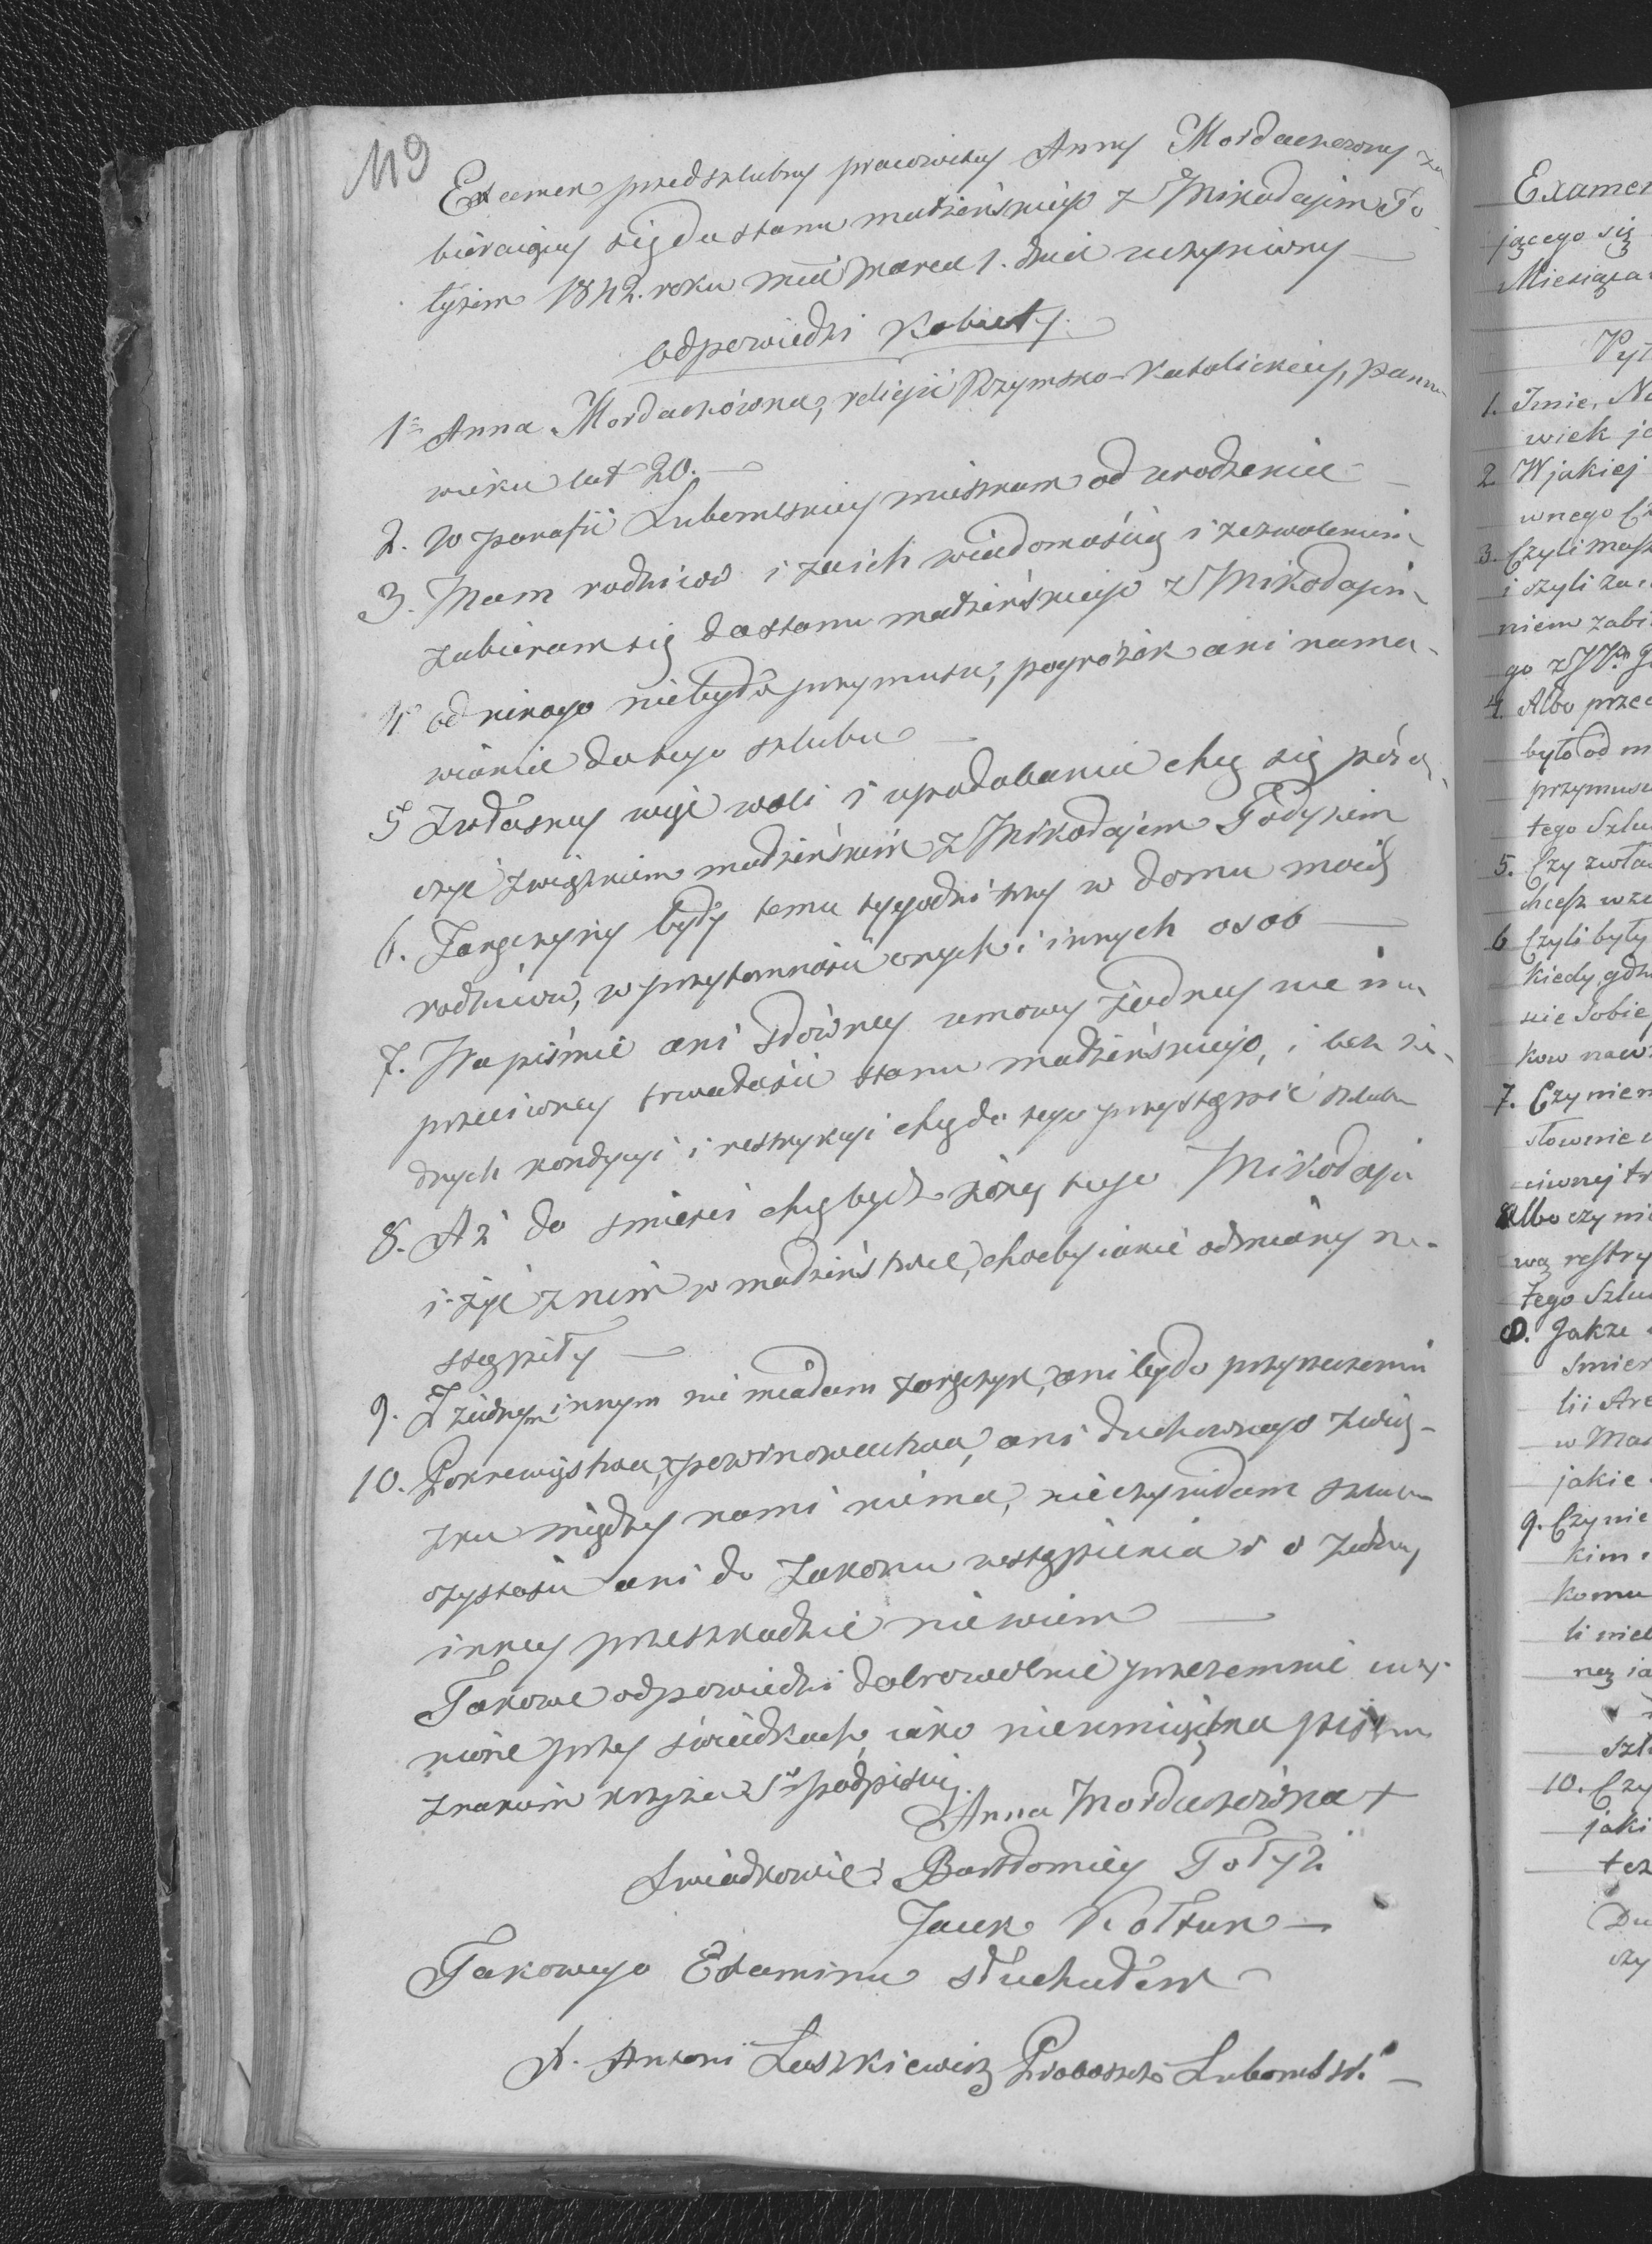 119
Examen przedszlubny pracowitey Anny Mordachowny za
bieraiącey się do stanu małżeńskiego z Mikołajem To
łyżem 1842. roku mca Marca 1. dnia uczyniony —
Odpowiedzi Kobiety.
1. Anna Mordachówna, religii Rzymsko-Katolickiey, panna
wieku lat 20. —
2. W parafii Lubomlskiey mieszkam od urodzenia —
3. Mam rodziców i za ich wiadomością i zezwoleniem
zabieram się do stanu małżeńskiego z Mikołajem
4. od nikogo niebyło przymusu, pogrożek ani nama-
wiania do tego szlubu —
5 Z własney więc woli i upodobania chcę się połą-
czyć związkiem małżeńskim z Mikołajem Tołyżem
6. Zaręczyny były temu tygodni trzy w domu moich
rodziców, w przytomności onych i innych osob —
7. Na piśmie ani słowney umowy żadney nie ma
przeciwney trwałości stanu małżeńskiego, i bez ża-
dnych kondycyi i restrykcyi chcę do tego przystąpić szlubu
8. Aż do smierci chcę bydź żoną tego Mikołaja
i żyć z nim w małżeństwie, choćby iakie odmiany na-
stąpiły —
9. Z żadnym innym nie miałam zaręczyn, ani było przyrzeczenia
10. Pokrewieństwa, powinowactwa, ani duchownego związ-
zku między nami niema, nieczyniłam szlubu
czystości ani do Zakonu wstąpienia i o żadney
inney przeszkodzie niewiem —
Takowe odpowiedzi dobrowolnie przezemnie uczy-
nione przy świadkach iako nieumieiętna pisma
znakiem krzyża S° podpisuię.
Anna Mordachówna +
Świadkowie: Bartłomiey Tołyż
Jacek Kołtun —
Takowego Examinu słuchałem
X. Antoni Laszkiewicz Proboszcz Lubomlski. —
Examen
jącego się
Miesiąca
Pyt
1. Imie, Na
wiek ja
2 W jakiej
wnego C
3. Czyli masz
i czyli za i
niem zabi
go z
4. Albo przec
było od m
przymusu
tego Szlu
5. Czy zwła
chcesz wze
6 Czyli były
kiedy, gdz
sie Sobie
kow naw
7. Czy niem
słownie u
ciwnej tr
Albo czy nie
wą restry
tego Szlu
8. Jakże
Smier
lii
w Ma
jakie
9. Czy nie
kim
komu
li nieb
ną ja
Szl
10. Czy
jaki
tez
Du
czy